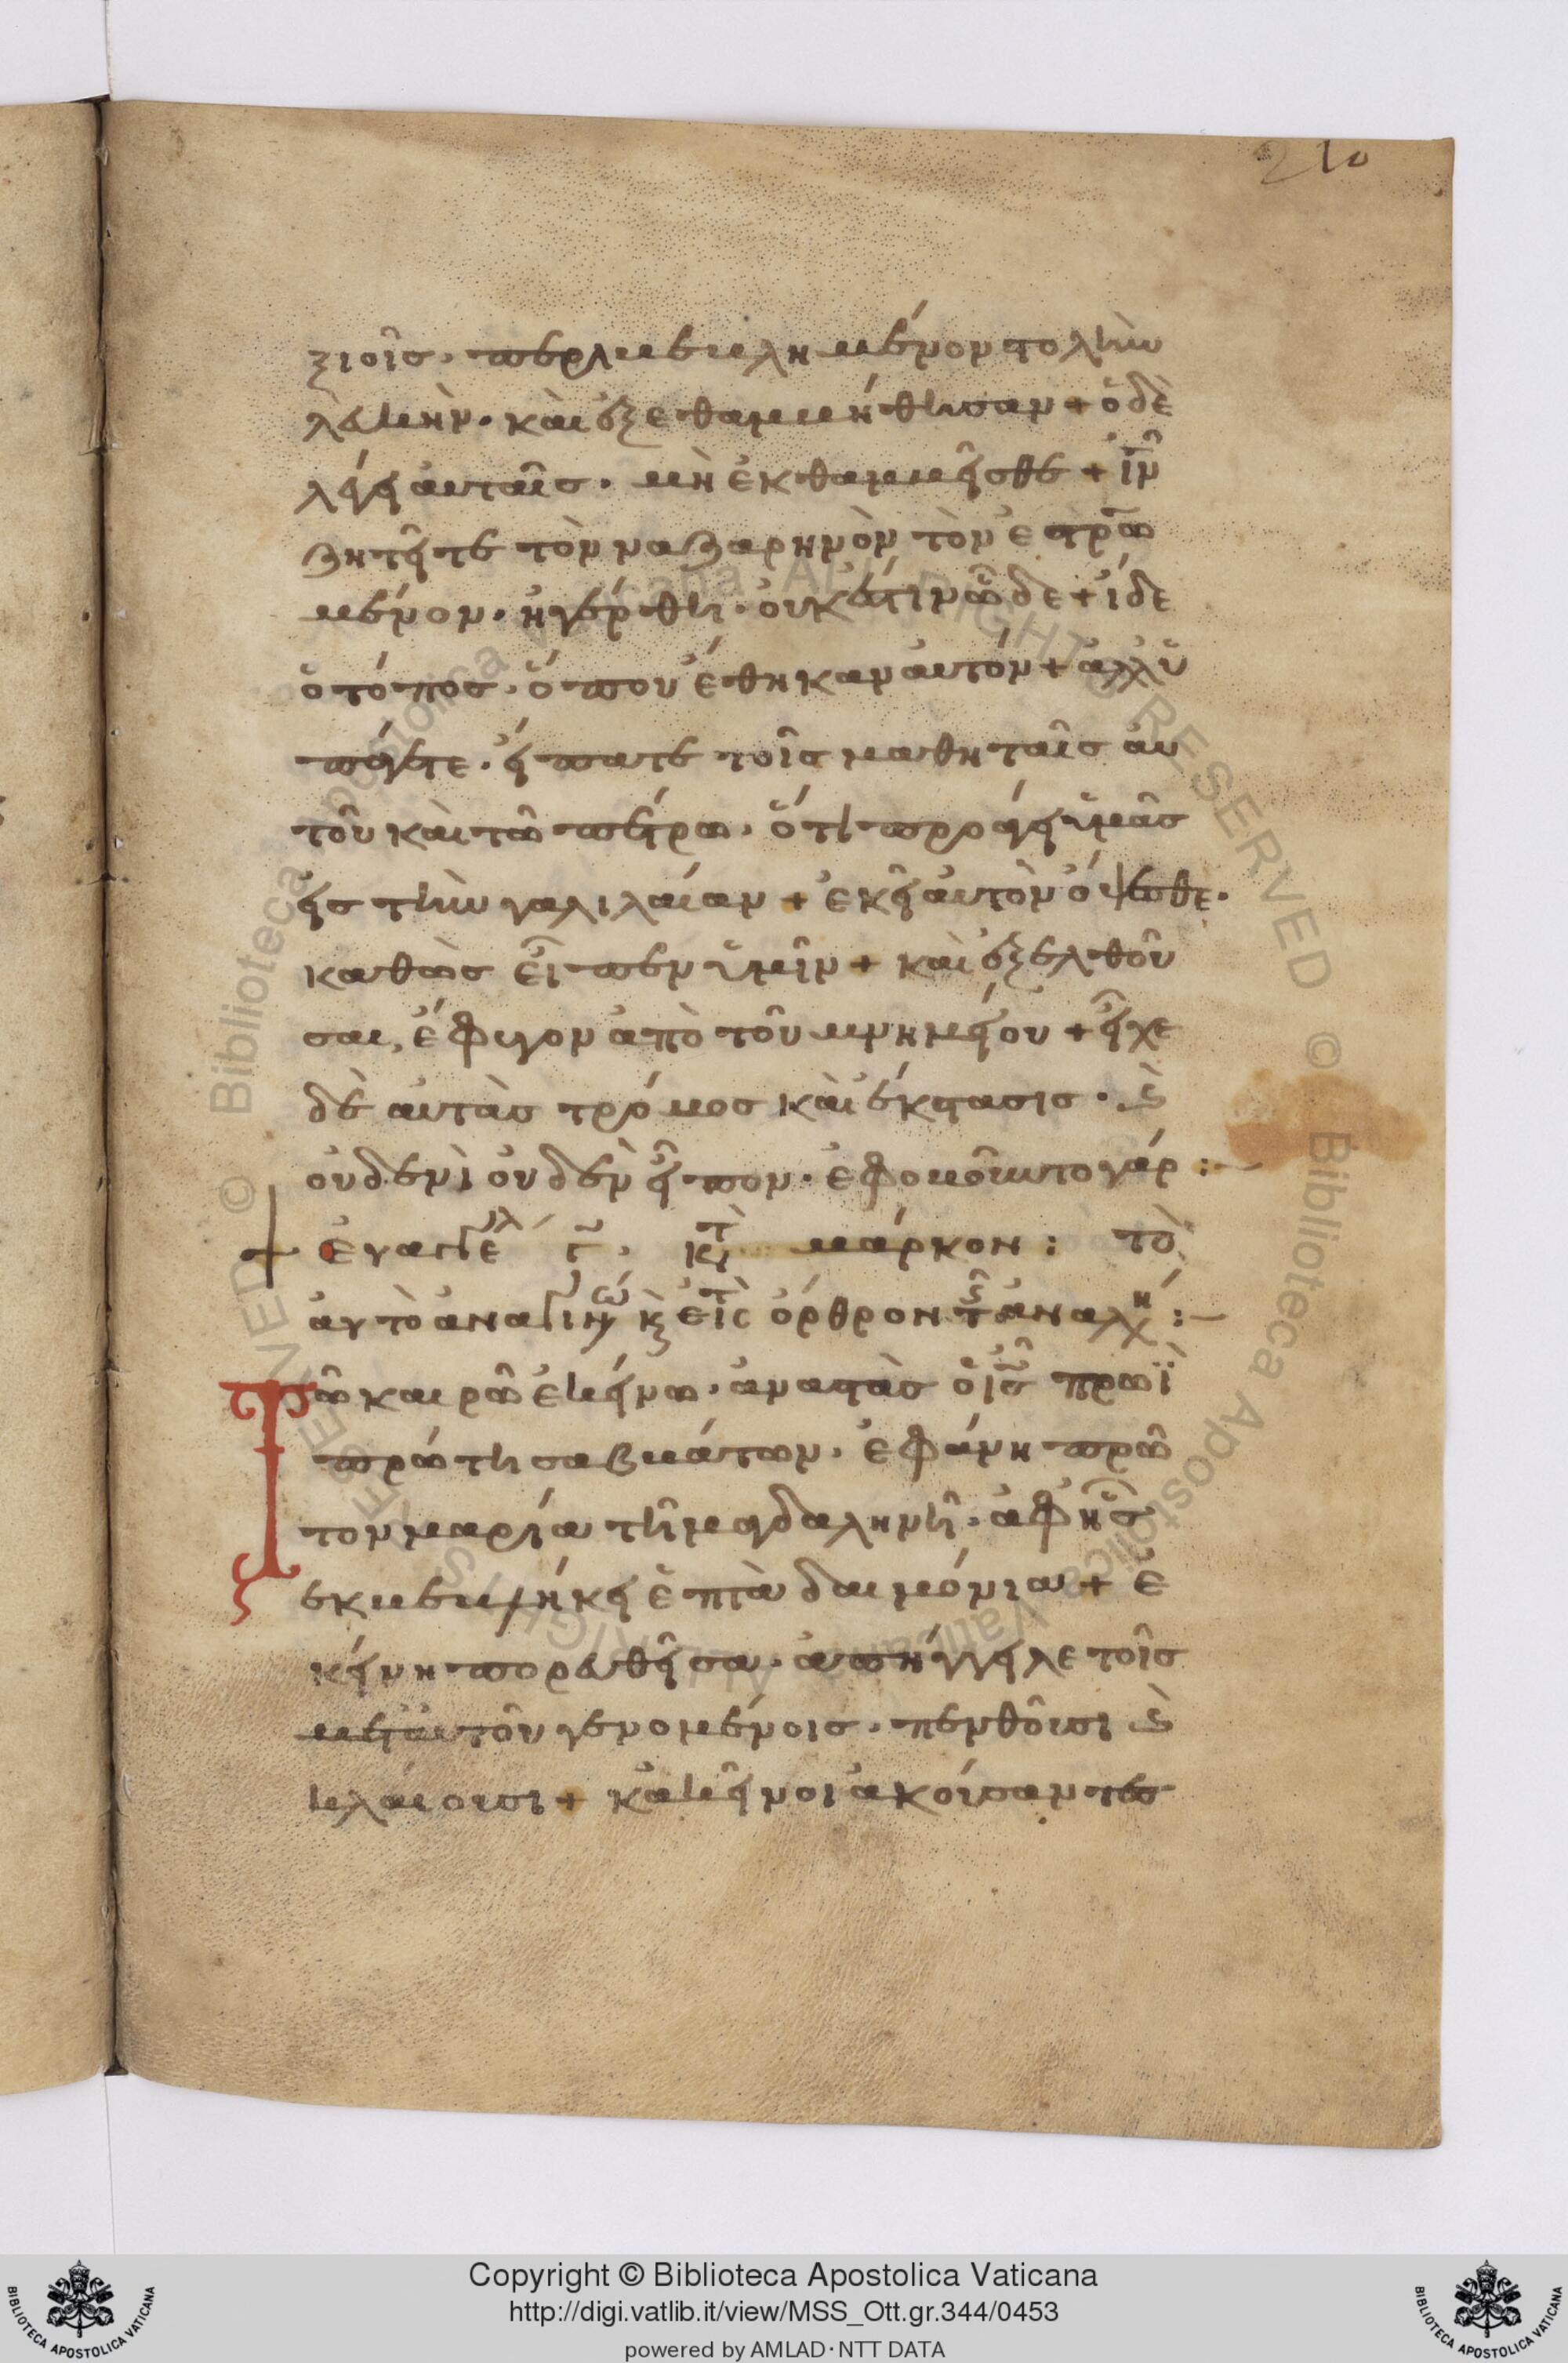 210
ξιοῖς· περιβεβλημένον στολὴν
λευκὴν· καὶ ἐξεθαμβήθησαν + ὁ δὲ
λέγει αὐταῖς· μὴ ἐκθαμβεῖσθε + ἰν̅
ζητεῖτε τὸν ναζαρηνὸν τὸν ἐστρω
μένον· ἠγέρθη· οὐκ ἔστιν ὧδε + ἴδε
ὁ τόπος· ὅπου ἔθηκαν αὐτόν + ἀλλ' ὑ
πάγετε· εἴπατε τοῖς μαθηταῖς αὐ
τοῦ καὶ τῶ πέτρω· ὅτι προάγει ὑμᾶς
εἰς τὴν γαλιλαίαν + ἐκεῖ αὐτὸν ὄψεσθε·
καθὼς εἶπεν ὑμῖν + καὶ ἐξελθοῦ
σαι, ἔφυγον ἀπὸ τοῦ μνημείου + εἶχε
δὲ αὐτὰς τρόμος καὶ ἔκστασις· ϗ
οὐδενὶ οὐδὲν εἶπον· ἐφοβοῦντο γάρ :~
+ ἐυαγγελ γ̅· κτ μάρκον : τὸ
αὐτὸ ἀναγινω ϗ εἰς ὄρθρον τ ἀναλη :~
Τῶ καιρῶ ἐκείνω· ἀναστὰς ὁ ις̅ πρωῒ
πρώτη σαββάτων· ἐφάνη πρῶ
τον μαρία τῆ μαγδαληνῆ· ἀφ' ἧς
ἐκβεβλήκει ἑπτὰ δαιμόνια + ἐ
κείνη πορευθεῖσα· ἀπήγγειλε τοῖς
μετ' αὐτοῦ γενομένοις· πενθοῦσι ϗ
κλαίουσι + κἀκεῖνοι ἀκούσαντες
© Biblioteca Apostolica Vaticana ALL RIGHTS RESERVED © Biblioteca Apostolica Vaticana ALL RIGHTS RESERVED
Copyright © Biblioteca Apostolica Vaticana
http://digi.vatlib.it/view/MSS_Ott.gr.344/0453
powered by AMLAD·NTT DATA
BIBLIOTECA APOSTOLICA VATICANA
BIBLIOTECA APOSTOLICA VATICANA